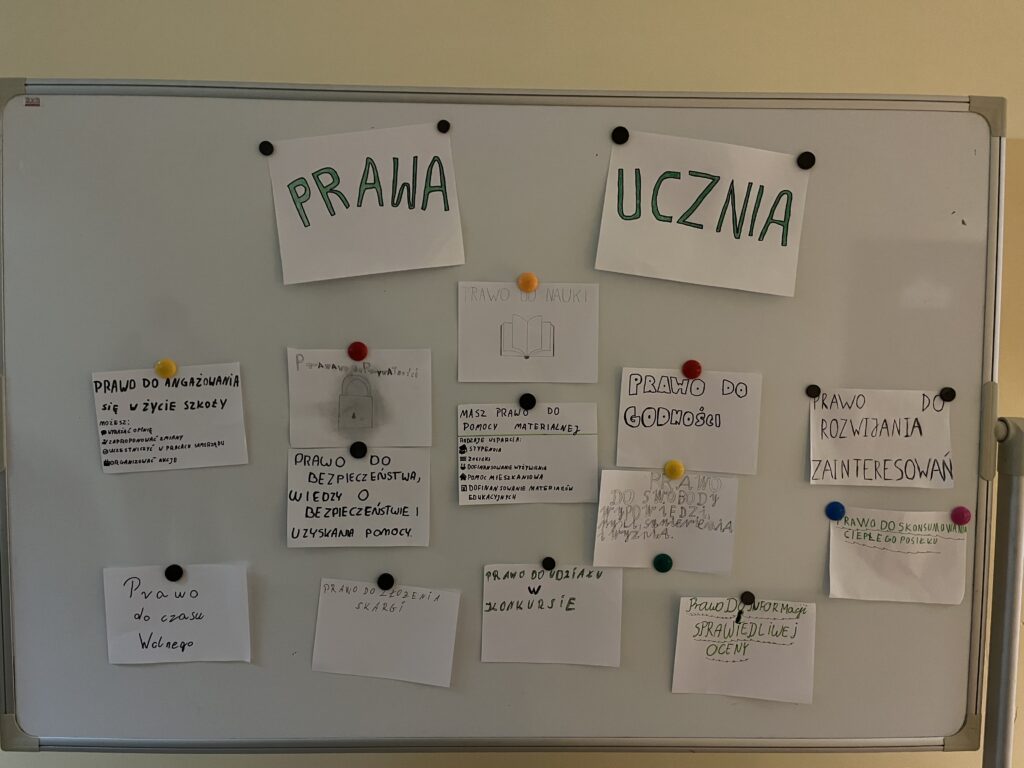 PRAWA
UCZNIA
PRAWO DO NAUKI
PRAWO DO ANGAŻOWANIA
się W ŻYCIE SZKOŁY
MOŻESZ:
WYRAŻAĆ OPINIE
ZAPROPONOWAĆ ZMIANY
UCZESTNICZYĆ W PRACACH SAMORZĄDU
ORGANIZOWAĆ AKCJE
PRAWO DO
BEZPIECZEŃSTWA,
WIEDZY O
BEZPIECZEŃSTWIE I
UZYSKANIA POMOCY.
MASZ PRAWO DO
POMOCY MATERIALNEJ
RODZAJE WSPARCIA:
STYPENDIA
ZASIŁKI
DOFINANSOWANIE WYŻYWIENIA
POMOC MIESZKANIOWA
DOFINANSOWANIE MATERIAŁÓW
EDUKACYJNYCH
PRAWO DO
GODNOŚCI
PRAWO
DO SWOBODY
PRAWO DO
ROZWIJANIA
ZAINTERESOWAŃ
PRAWO DO SKONSUMOWANIA
CIEPŁEGO POSIŁKU
Prawo
do czasu
Wolnego
PRAWO DO ZŁOŻENIA
SKARGI
PRAWO DO UDZIAŁU
W
KONKURSIE
Prawo DO INFORMACJI
SPRAWIEDLIWEJ
OCENY